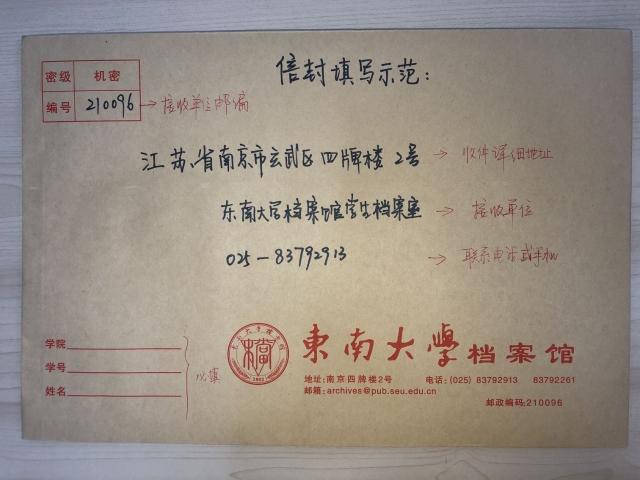 信封填写示范：
密级 机密
编号 210096 →接收单位邮编
江苏省南京市玄武区四牌楼2号 → 收件详细地址
东南大学档案馆学生档案室 → 接收单位
025-83792913 → 联系电话或手机
学院
学号
姓名
必填
東南大學档案馆
地址:南京四牌楼2号 电话:(025) 83792913 83792261
邮箱:archives@pub.seu.edu.cn
邮政编码:210096